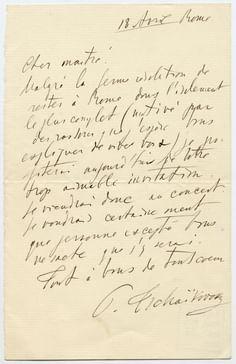 18 Avril Rome
Cher maître!
Malgré la ferme résolution de
rester à Rome dans l'isolement
le plus complet (motivé par
des raisons que j'espère vous
expliquer de vive voix) je
aujourd'hui de votre
trop aimable invitation.
Je viendrai donc au concert.
Je voudrais certainement
que personne excepté vous
ne sache que j'y serai.
Tout à vous de tout coeur
P. Tschaïkovsky